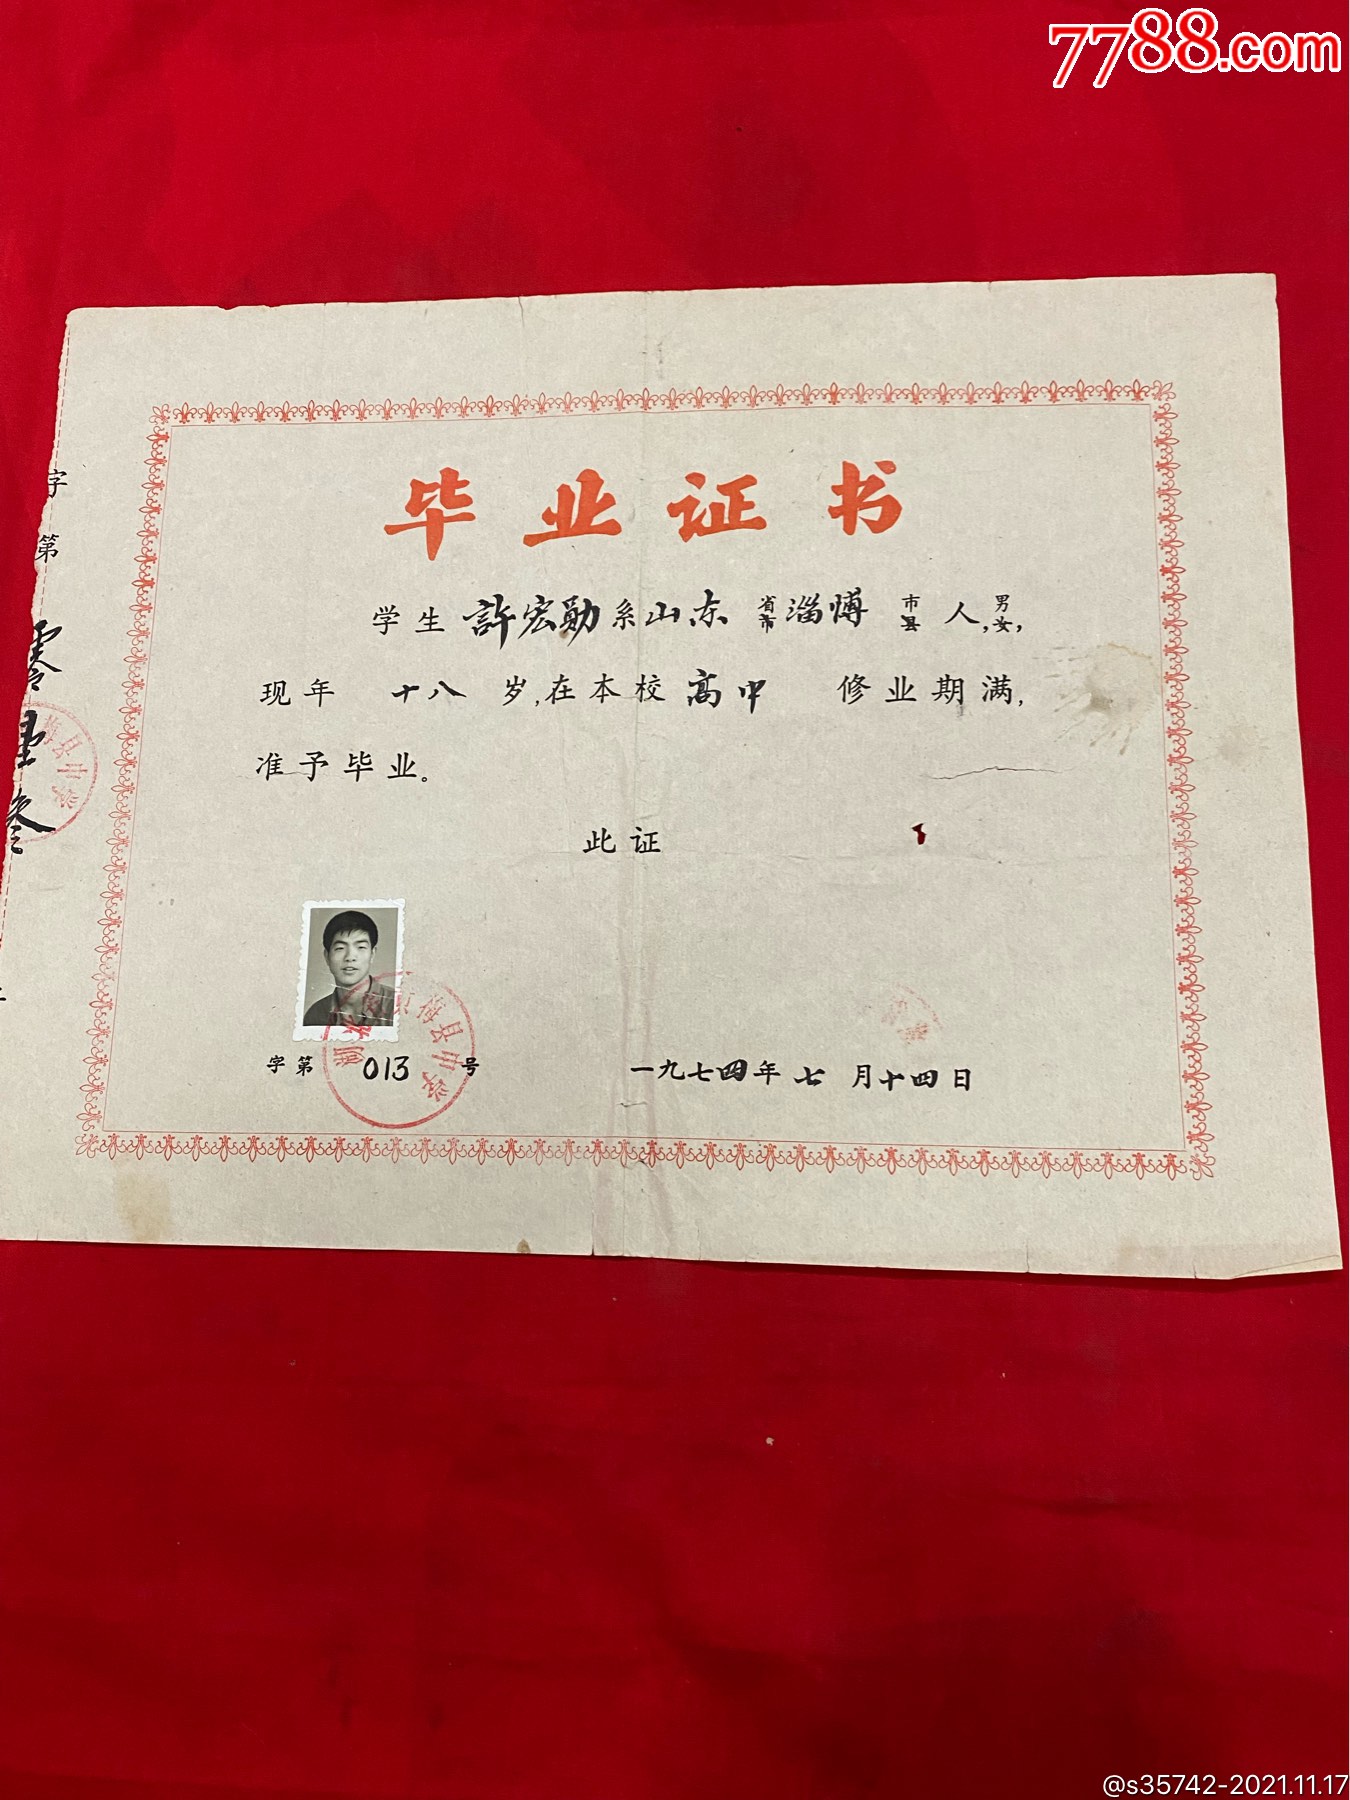 7788.com
毕业证书
学生 許宏勋 系 山东 省市 淄博 市县 人,男女,
现年 十八 岁,在本校 高中 修业期满,
准予毕业。
此证
字第 013 号
一九七四年七月十四日
字第
零壹叁
梅县中学
梅县中学
@s35742-2021.11.17